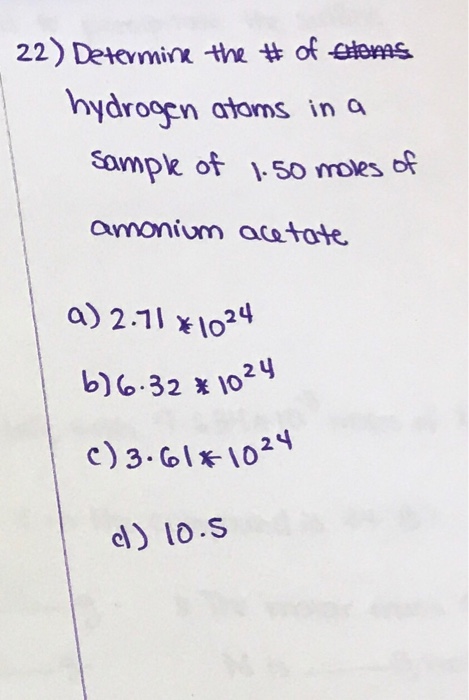 22) Determine the # of atoms
hydrogen atoms in a
sample of 1.50 moles of
amonium acetate
a) 2.71 * 10^24
b) 6.32 * 10^24
c) 3.61 * 10^24
d) 10.5